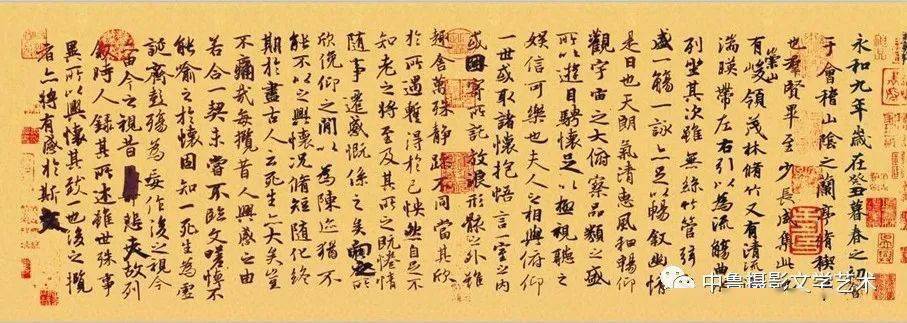 永和九年歲在癸丑暮春之初會
于會稽山陰之蘭亭脩禊
也羣賢畢至少長咸集此
有崇山峻領茂林脩竹又有清流
湍暎帶左右引以為流觴曲
列坐其次雖無絲竹管弦
盛一觴一詠亦足以暢叙幽情
是日也天朗氣清惠風和暢仰
觀宇宙之大俯察品類之盛
所以遊目騁懷足以極視聽之
娛信可樂也夫人之相與俯仰
一世或取諸懷抱悟言一室之內
或因寄所託放浪形骸之外雖
趣舍萬殊靜躁不同當其欣
於所遇蹔得於己怏然自足不
知老之將至及其所之既惓情
隨事遷感慨係之矣向之所
欣俛仰之閒以為陳迹猶不
能不以之興懷況脩短隨化終
期於盡古人云死生亦大矣豈
不痛哉每攬昔人興感之由
若合一契未嘗不臨文嗟悼不
能喻之於懷固知一死生為虛
誕齊彭殤為妄作後之視今
亦由今之視昔悲夫故列
敘時人錄其所述雖世殊事
異所以興懷其致一也後之攬
者亦將有感於斯文
中鲁摄影文学艺术